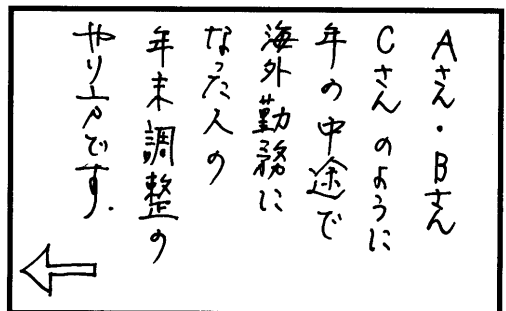 Aさん・Bさん
Cさんのように
年の中途で
海外勤務に
なった人の
年末調整の
やり方です.